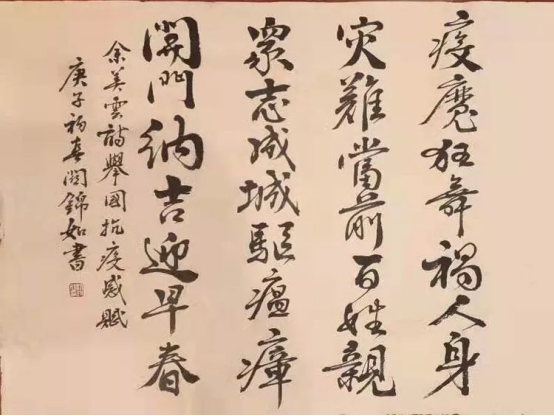 疫魔狂舞禍人身
災難當前百姓親
眾志成城驅瘟瘴
開門納吉迎早春
余美雲詩舉國抗疫感賦
庚子初春閻錦如書